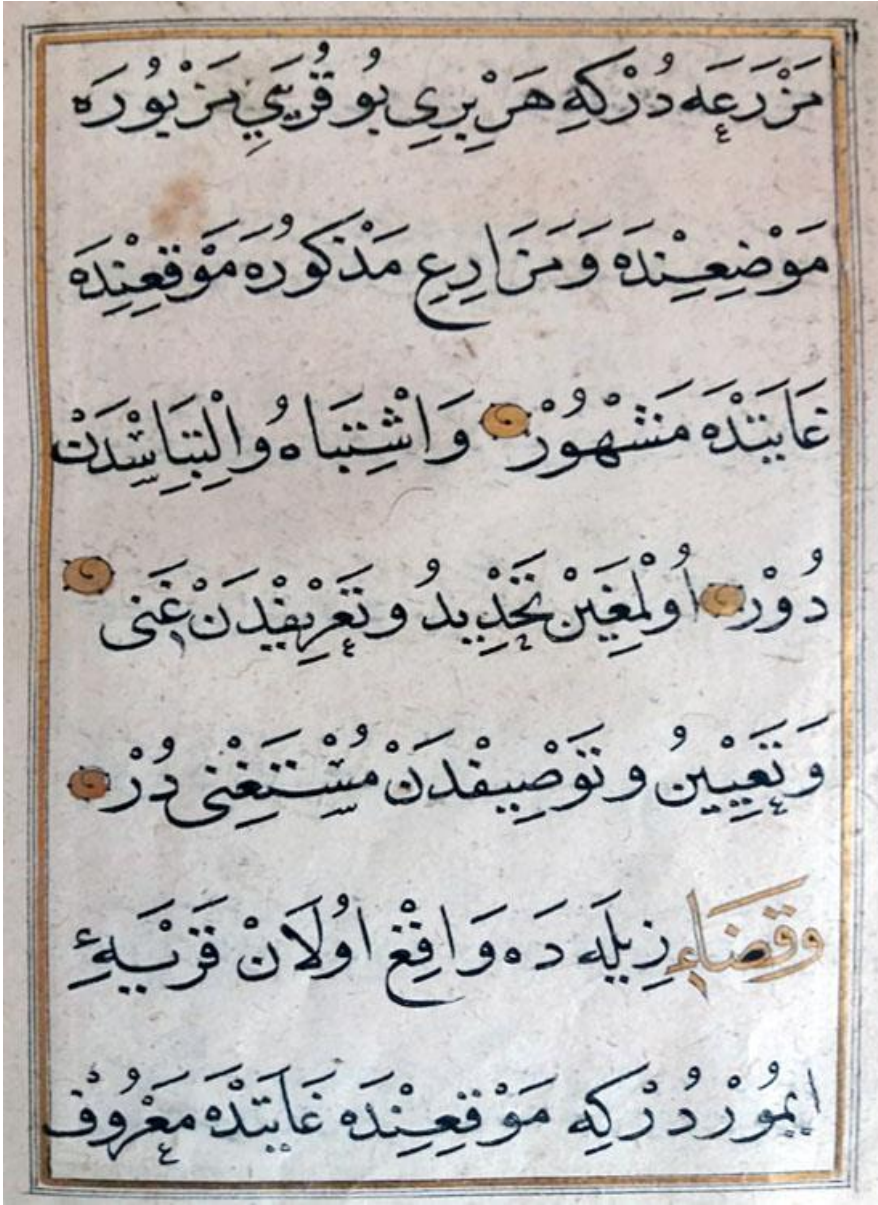 مَزْرَعَه دُرْكِه هَرْبِرِى بُو قُرَيِى مَزْبُورَه
مَوْضِعِنْدَه وَمَزَارِعِ مَذْكُورُه مَوْقِعِنْدَه
غَايَتْدَه مَشْهُورْ وَاشْتِبَاهُ والْتِبَاسْدَنْ
دُورْ اُولْمَغِيْنْ تَحْدِيدُ وتَعْرِيفْدَنْ غَنِى
وَتَعْيِيْنُ وتَوْصِيفْدَنْ مُسْتَغْنِى دُرْ
وقَضَاءِ زِيلَه دَه وَاقِعْ اوُلَانْ قَرْيَهءِ
ايمُورْدُرْكِه مَوْقِعِنْدَه غَايَتْدَه مَعْرُوفْ